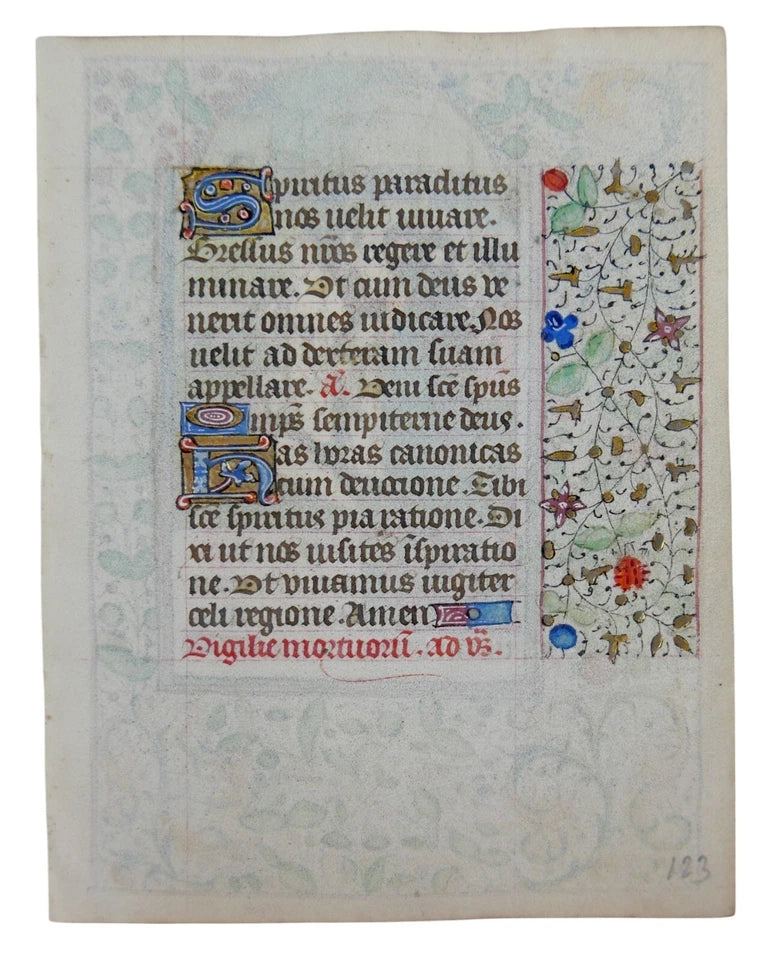 Spiritus paraclitus
nos velit iuuare.
Gressus nr̃os regere et illu
minare. Ut cum deus ve
nerit omnes iudicare. Nos
uelit ad dexteram suam
appellare. A. Veni sc̃e sp̃us
Om̃ps sempiterne deus.
Has horas canonicas
cum deuocione. Tibi
sc̃e spiritus pia ratione. Di
xi ut nos uisites ĩspiratio
ne. Ut viuamus iugiter
celi regione. Amen
Vigilie mortuorũ. ad vr̃s.
123